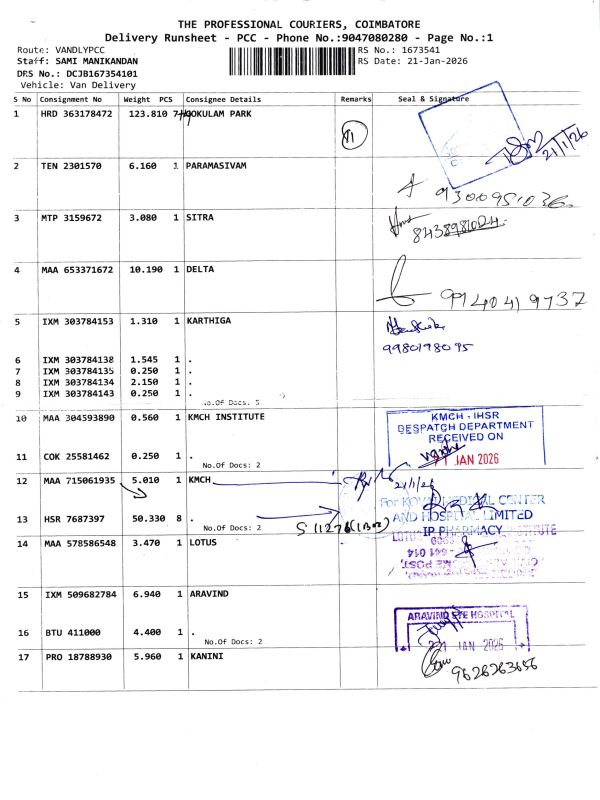 THE PROFESSIONAL COURIERS, COIMBATORE
Delivery Runsheet - PCC - Phone No.:9047080280 - Page No.:1
Route: VANDLYPCC
RS No.: 1673541
Staff: SAMI MANIKANDAN
RS Date: 21-Jan-2026
DRS No.: DCJB167354101
Vehicle: Van Delivery
S No Consignment No Weight PCS Consignee Details Remarks Seal & Signature
1 HRD 363178472 123.810 GOKULAM PARK
21/1/26
2 TEN 2301570 6.160 1 PARAMASIVAM
3 MTP 3159672 3.080 1 SITRA
4 MAA 653371672 10.190 1 DELTA
9940419737
5 IXM 303784153 1.310 1 KARTHIGA
9980198095
6 IXM 303784138 1.545 1 .
7 IXM 303784135 0.250 1 .
8 IXM 303784134 2.150 1 .
9 IXM 303784143 0.250 1 .
No.Of Docs: 5
10 MAA 304593890 0.560 1 KMCH INSTITUTE
KMCH - IHSR
DESPATCH DEPARTMENT
RECEIVED ON
21 JAN 2026
11 COK 25581462 0.250 1 .
No.Of Docs: 2
12 MAA 715061935 5.010 1 KMCH
21/1/26
For KOVAI MEDICAL CENTER
AND HOSPITAL LIMITED
IP PHARMACY
13 HSR 7687397 50.330 8 .
No.Of Docs: 2
14 MAA 578586548 3.470 1 LOTUS
15 IXM 509682784 6.940 1 ARAVIND
ARAVIND EYE HOSPITAL
21 JAN 2026
16 BTU 411000 4.400 1 .
No.Of Docs: 2
17 PRO 18788930 5.960 1 KANINI
9626263656